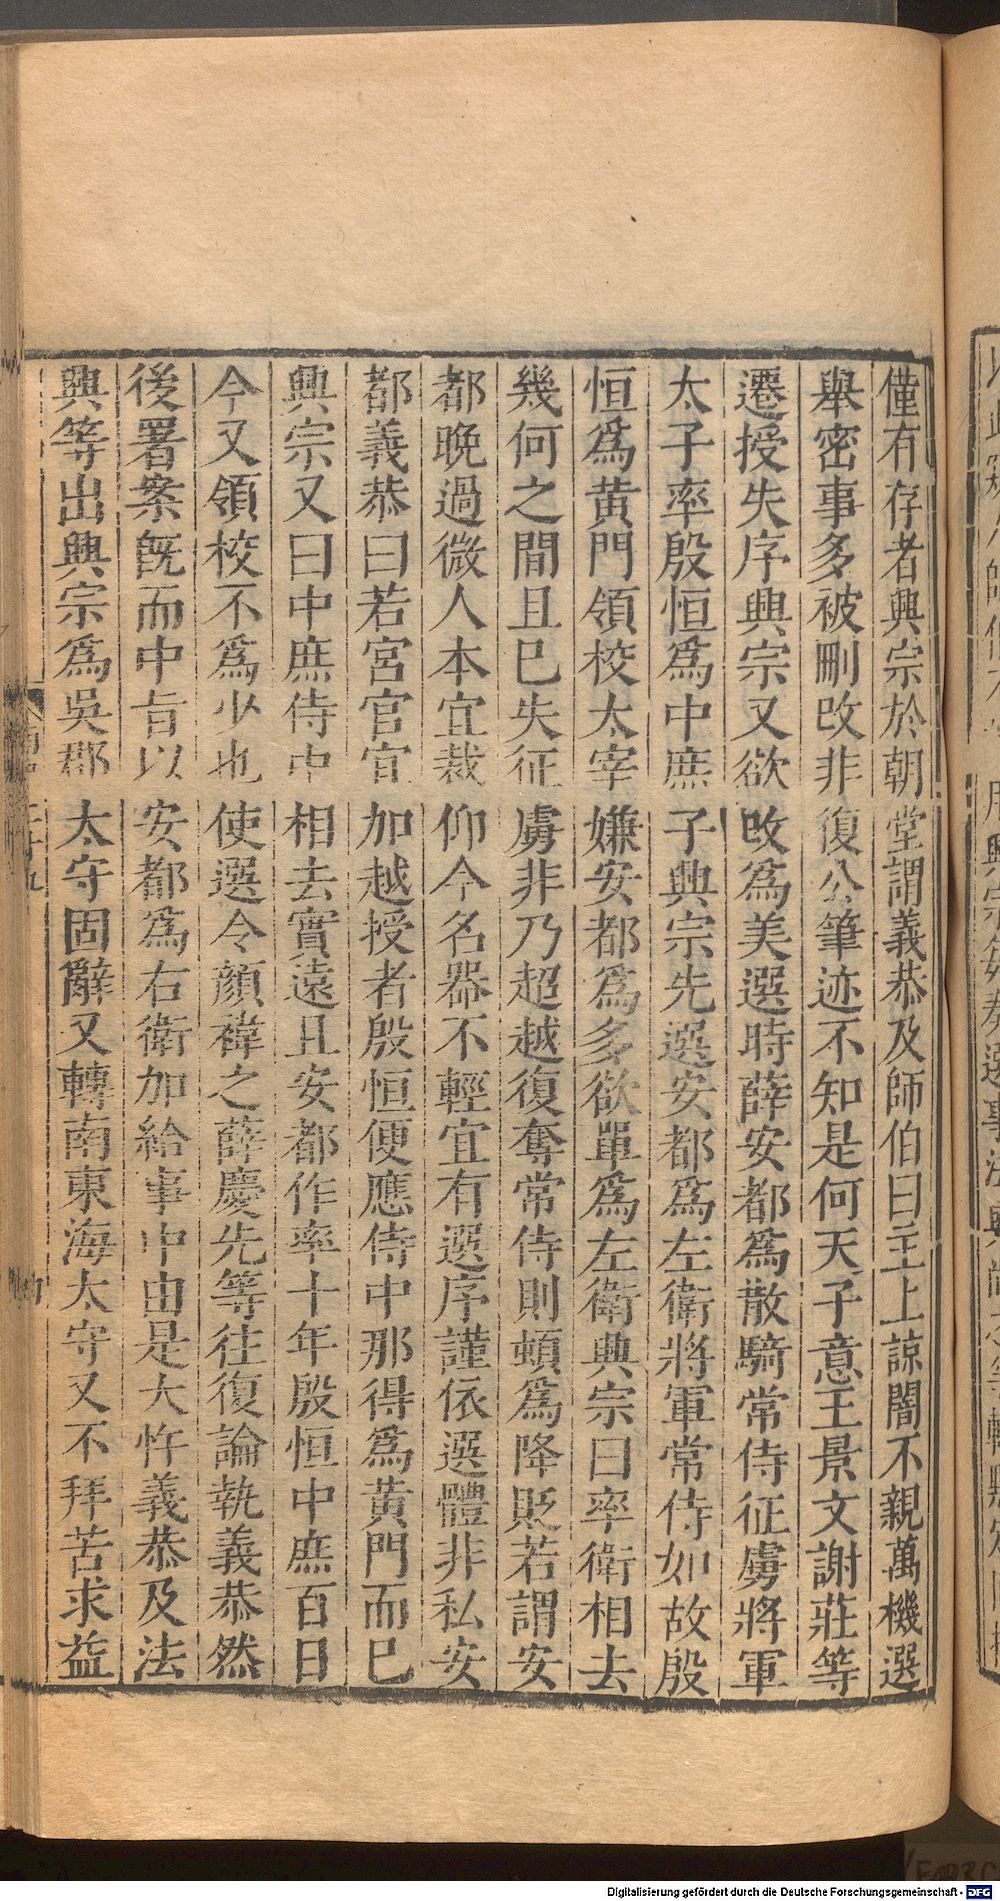 僅有存者興宗於朝堂謂義恭及師伯曰主上諒闇不親萬機選
舉密事多被刪改非復公筆迹不知是何天子意王景文謝莊等
遷授失序興宗又欲改爲美選時薛安都爲散騎常侍征虜將軍
太子率殷恒爲中庶子興宗先選安都爲左衛將軍常侍如故殷
恒爲黄門領校太宰嫌安都爲多欲單爲左衛興宗曰率衛相去
幾何之間且已失征虜非乃超越復奪常侍則頓爲降貶若謂安
都晚過微人本宜裁仰今名器不輕宜有選序謹依選體非私安
都義恭曰若宮官宜加越授者殷恒便應侍中那得爲黄門而已
興宗又曰中庶侍中相去實遠且安都作率十年殷恒中庶百日
今又領校不爲少也使選令顔褘之薛慶先等往復論執義恭然
後署案旣而中旨以安都爲右衛加給事中由是大忤義恭及法
興等出興宗爲吳郡太守固辭又轉南東海太守又不拜苦求益
Digitalisierung gefördert durch die Deutsche Forschungsgemeinschaft - DFG